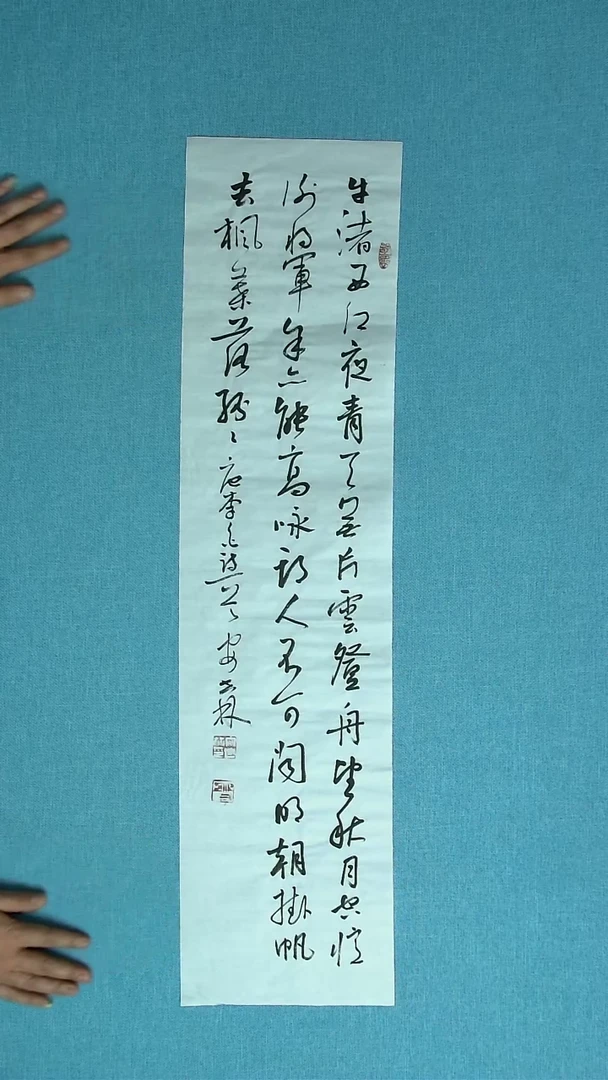 牛渚西江夜青天無片雲登舟望秋月空憶
謝將軍余亦能高咏斯人不可聞明朝掛帆
去楓葉落紛紛唐李白詩一首